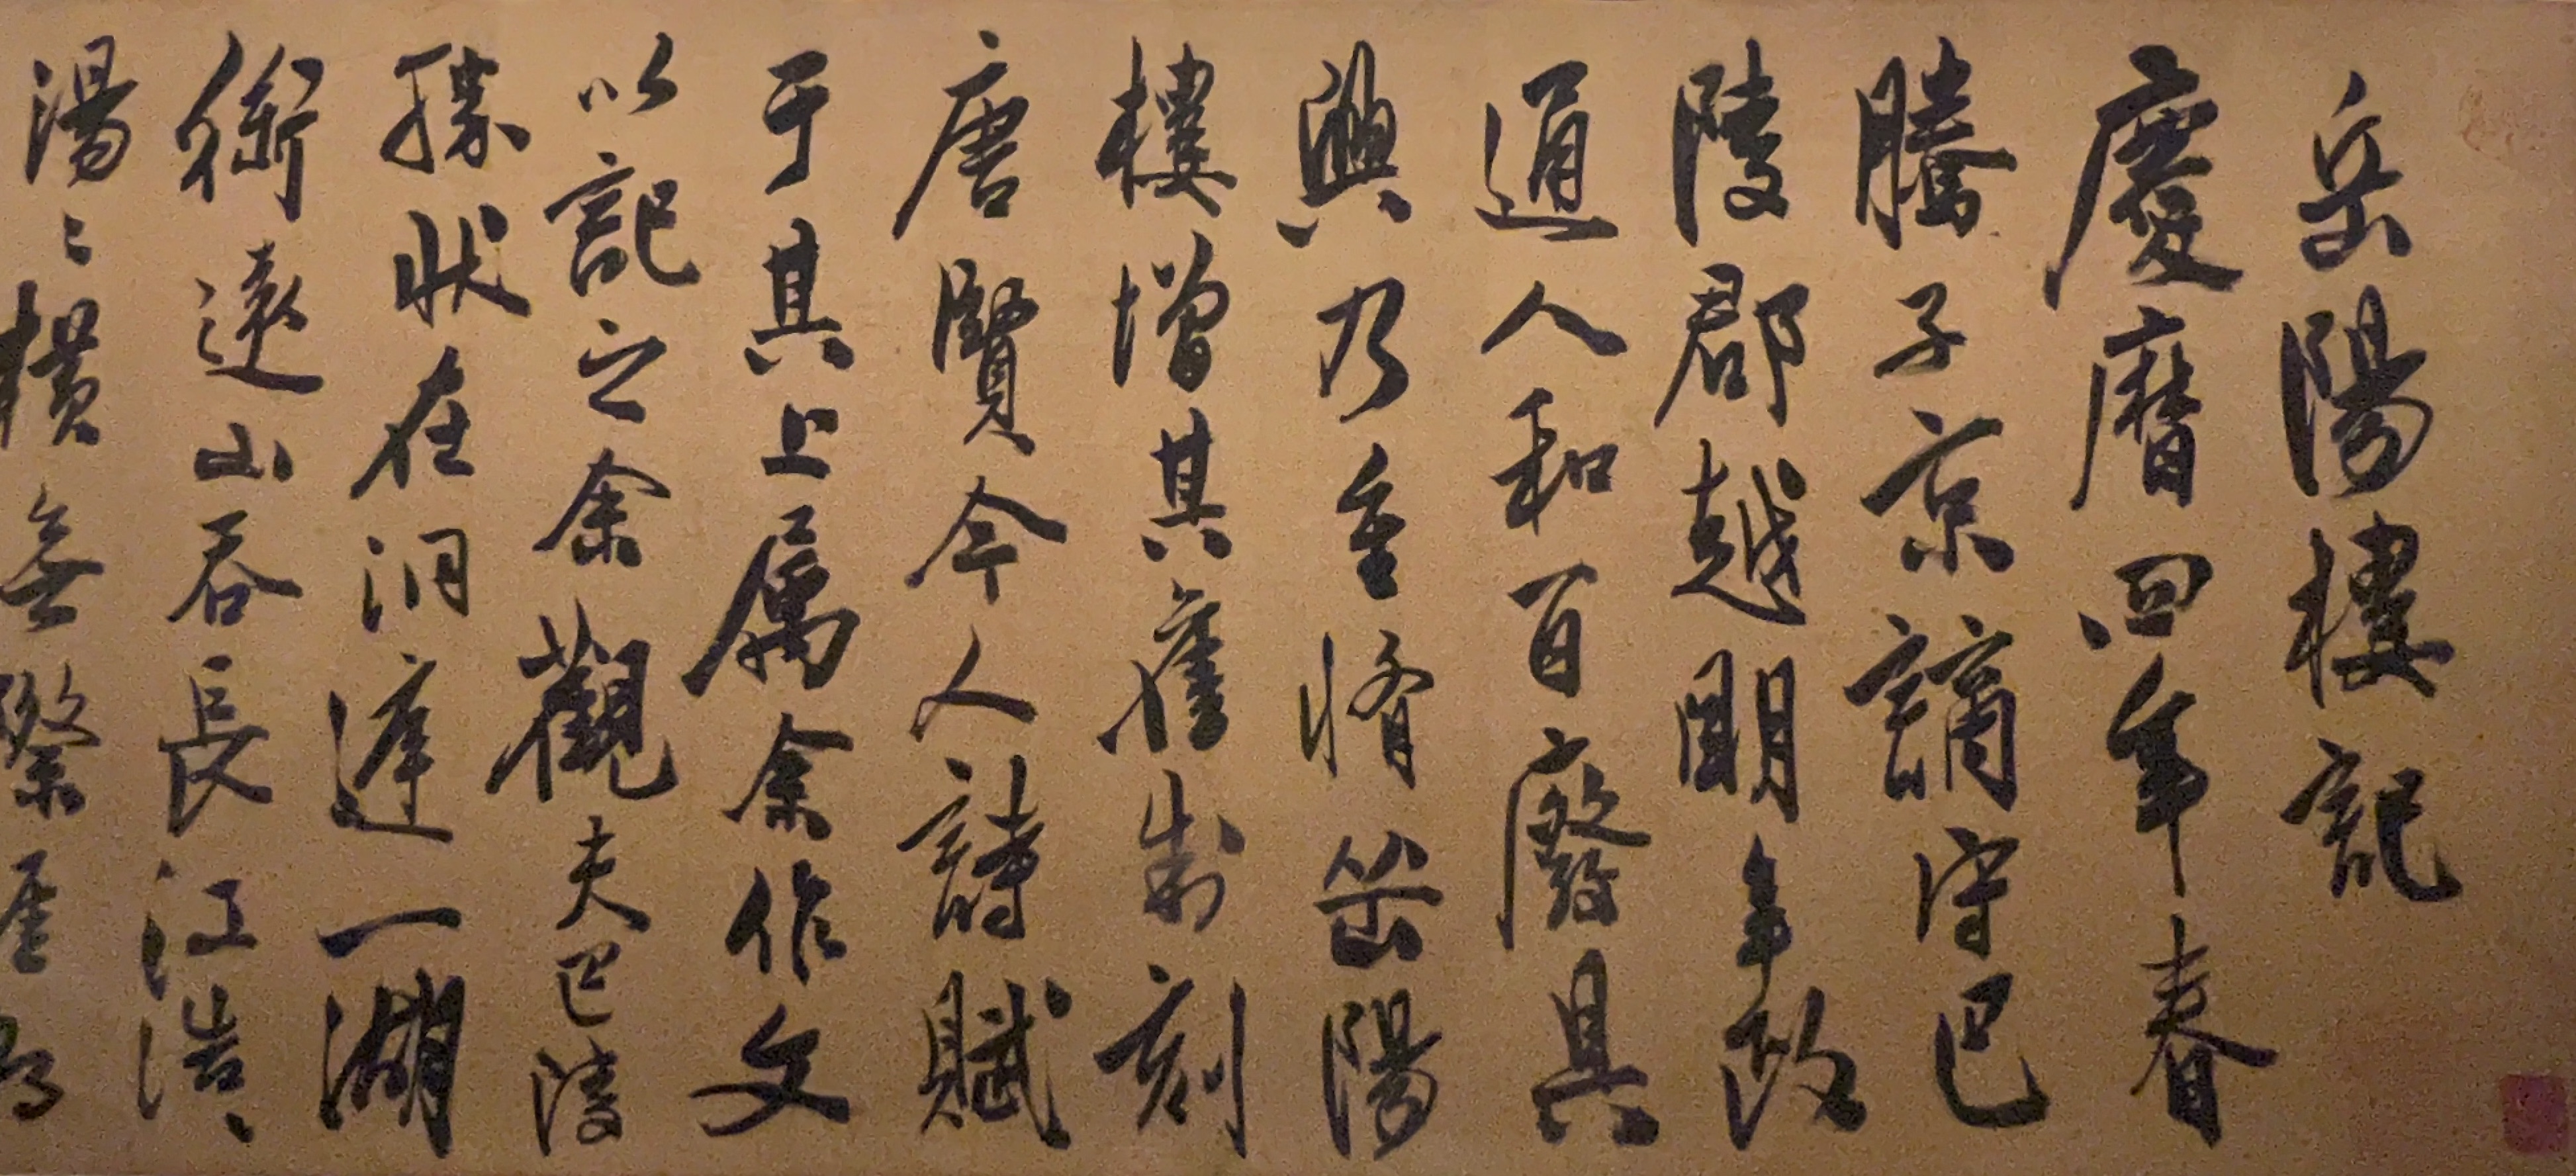 岳陽樓記
慶曆四年春
騰子京謫守巴
陵郡越明年政
通人和百廢具
興乃重脩岳陽
樓增其舊制刻
唐賢今人詩賦
于其上屬余作文
以記之余觀夫巴陵
勝狀在洞庭一湖
銜遠山吞長江浩〻
湯〻橫無際涯